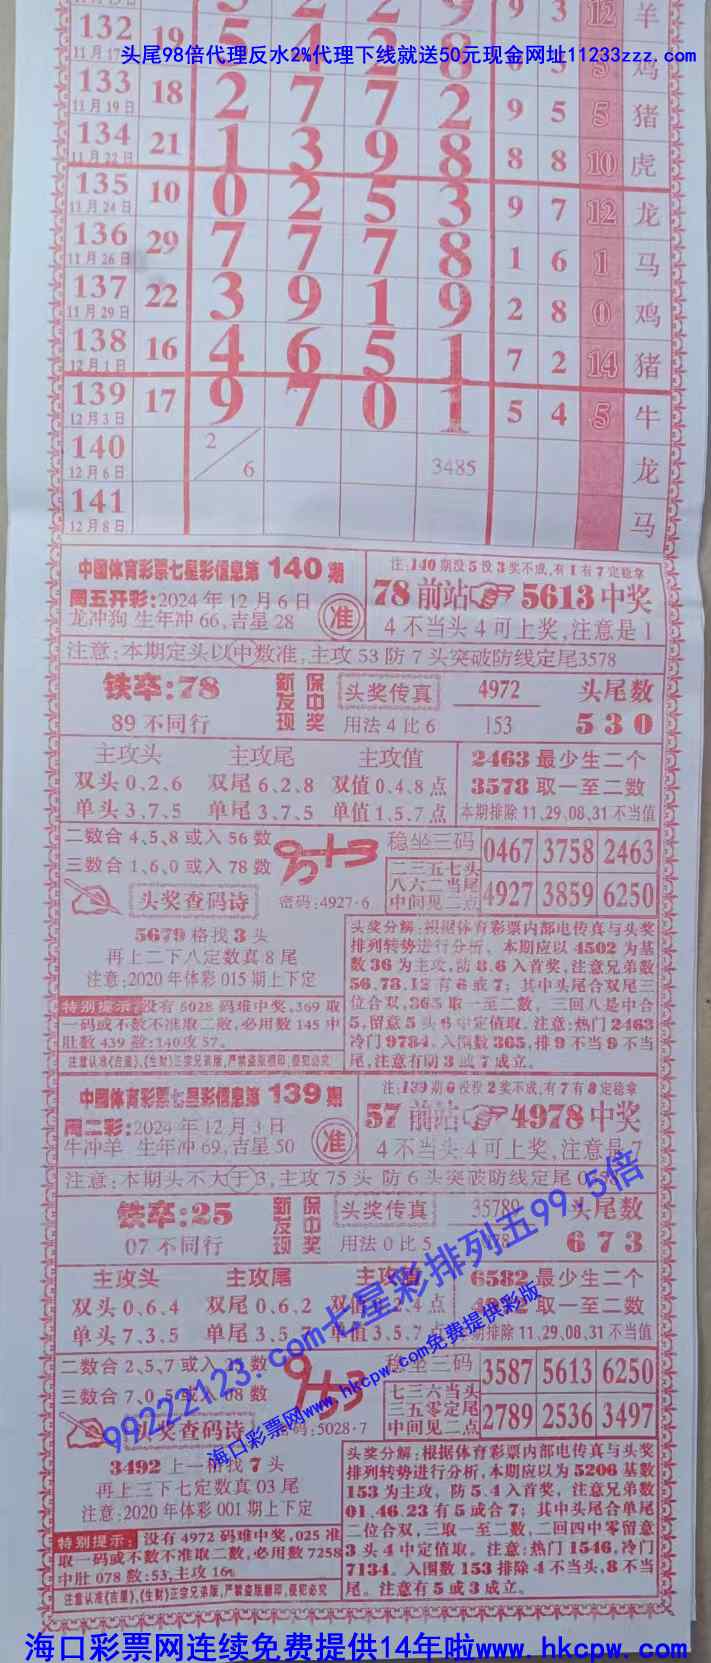 头尾98倍代理反水2%代理下线就送50元现金网址11233zzz.com
9 3 12 羊
132 19 5 4 2 8 鸡
11月17
133 18 2 7 7 2 9 5 5 猪
11月19日
134 21 1 3 9 8 8 8 10 虎
11月22日
135 10 0 2 5 3 9 7 12 龙
11月24日
136 29 7 7 7 8 1 6 1 马
11月26日
137 22 3 9 1 9 2 8 0 鸡
11月29日
138 16 4 6 5 1 7 2 14 猪
12月1日
139 17 9 7 0 1 5 4 5 牛
12月3日
140 2/6 3485 龙
12月6日
141 马
12月8日
中国体育彩票七星彩信息第140期
周五开彩:2024年12月6日
龙冲狗 生年冲66,吉星28
准
注:140期没5投3奖不成,有1有7定稳拿
78前站 5613中奖
4不当头4可上奖,注意是1
注意:本期定头以中数准,主攻53防7头突破防线定尾3578
铁卒:78
89不同行
新发现 保中奖
头奖传真
用法4比6
4972
153
头尾数
530
主攻头 主攻尾 主攻值
双头0,2,6 双尾6,2,8 双值0,4,8点
单头3,7,5 单尾3,7,5 单值1,5,7点
2463最少生二个
3578取一至二数
本期排除11,29,08,31不当值
二数合4,5,8或入56数
三数合1,6,0或入78数
稳坐三码
二三五七头
八六二当尾
中间见二点
0467 3758 2463
4927 3859 6250
头奖查码诗
密码:4927·6
5679格找3头
再上二下八定数真8尾
注意:2020年体彩015期上下定
特别提示:没有5028码难中奖,369取
一码或不数不准取二数,必用数145中
肚数439数:140攻57。
注意认准《吉星》,《生财》正宗兄弟版,严禁盗版翻印,侵犯必究
头奖分解:根据体育彩票内部电传真与头奖
排列转势进行分析、本期应以4502为基
数36为主攻,防8.6入首奖,注意兄弟数
56,73,12有6或7;其中头尾合双尾三
位合双,365取一至二数,三回八是中合
5,留意5头6中定值取.注意:热门2463
冷门9784,入围数365,排9不当9不当
尾,注意有明3或7成立。
中国体育彩票七星彩信息第139期
周二彩:2024年12月3日
牛冲羊 生年冲69,吉星50
准
注:139期6没投2奖不成,有7有8定稳拿
57前站 4978中奖
4不当头4可上奖,注意是7
注意:本期头不大于3,主攻75头 防6头突破防线定尾0
铁卒:25
07不同行
新发现 保中奖
头奖传真
用法0比5
35789
头尾数
673
主攻头 主攻尾
双头0,6,4 双尾0,6,2 双值 2,4点
单头7,3,5 单尾3,5,7 单值3,5,7点
6582最少生二个
取一至二数
期排除11,29,08,31不当值
二数合2,5,7或入 数
三数合7,0,5或入08数
稳坐三码
七三六当头
三五零定尾
中间见二点
3587 5613 6250
2789 2536 3497
头奖查码诗
密码:5028·7
3492上一格找7头
再上三下七定数真03尾
注意:2020年体彩001期上下定
特别提示:没有4972码难中奖,025准
取一码或不数不准取二数,必用数7258
中肚078数:53,主攻16。
注意认准《吉星》,《生财》正宗兄弟版,严禁盗版翻印,侵犯必究
头奖分解:根据体育彩票内部电传真与头奖
排列转势进行分析,本期应以为5206基数
153为主攻,防5.4入首奖,注意兄弟数
01.46.23有5或合7;其中头尾合单尾
二位合双,三取一至二数,二回四中零留意
3头4中定值取。注意:热门1546,冷门
7134。入围数153排除4不当头,8不当
尾。注意有5或3成立。
99222123.com七星彩排列五99.5倍
海口彩票网www.hkcpw.com免费提供彩版
海口彩票网连续免费提供14年啦www.hkcpw.com